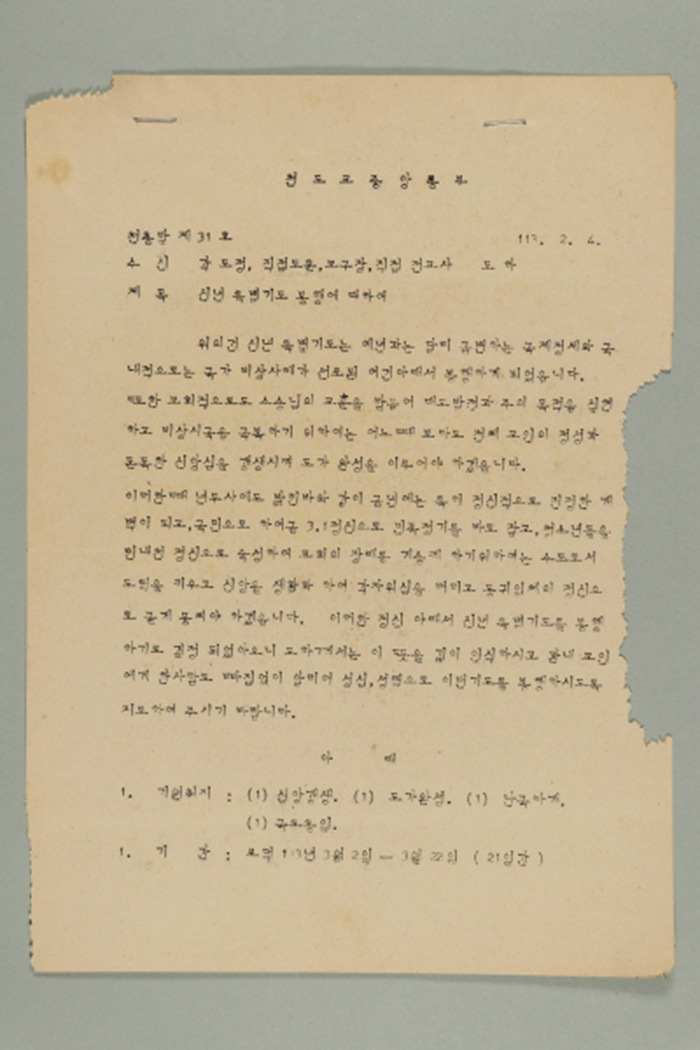 천도교중앙총부
천총발 제 31 호 113. 2. 4.
수 신 각 도정, 직접도훈, 교구장, 직접 전교사 도 하
제 목 신년 특별기도 봉행에 대하여
위의건 신년 특별기도는 예년과는 달리 급변하는 국제정세와 국
내적으로는 국가 비상사태가 선포된 여건아래서 봉행하게 되었읍니다.
또한 교회적으로도 스승님의 교훈을 받들어 대도발전과 주의 목적을 실현
하고 비상시국을 극복하기 위하여는 어느때 보다도 전체 교인의 정성과
돈독한 신앙심을 갱생시켜 도가 완성을 이루어야 하겠읍니다.
이러한때 년두사에도 밝힌바와 같이 금년에는 특히 정신적으로 진정한 개
벽이 되고, 국민으로 하여금 3.1정신으로 민족정기를 바로 잡고, 청소년들을
인내천 정신으로 육성하여 교회의 장래를 기승케 하기위하여는 수도로서
도인을 키우고 신앙을 생활화 하여 각자위심을 버리고 동귀일체의 정신으
로 굳게 뭉쳐야 하겠읍니다. 이러한 정신 아래서 신년 특별기도를 봉행
하기로 결정 되었아오니 도하께서는 이 뜻을 깊이 인식하시고 관내 교인
에게 한사람도 빠짐없이 알리어 성심, 성력으로 이번기도를 봉행하시도록
지도하여 주시기 바랍니다.
아 래
1. 기원취지 : (1) 신앙갱생. (1) 도가완성. (1)
(1) 국토통일.
1. 기 간 : 포덕 113년 3월 2일 — 3월 22일 ( 21일간 )